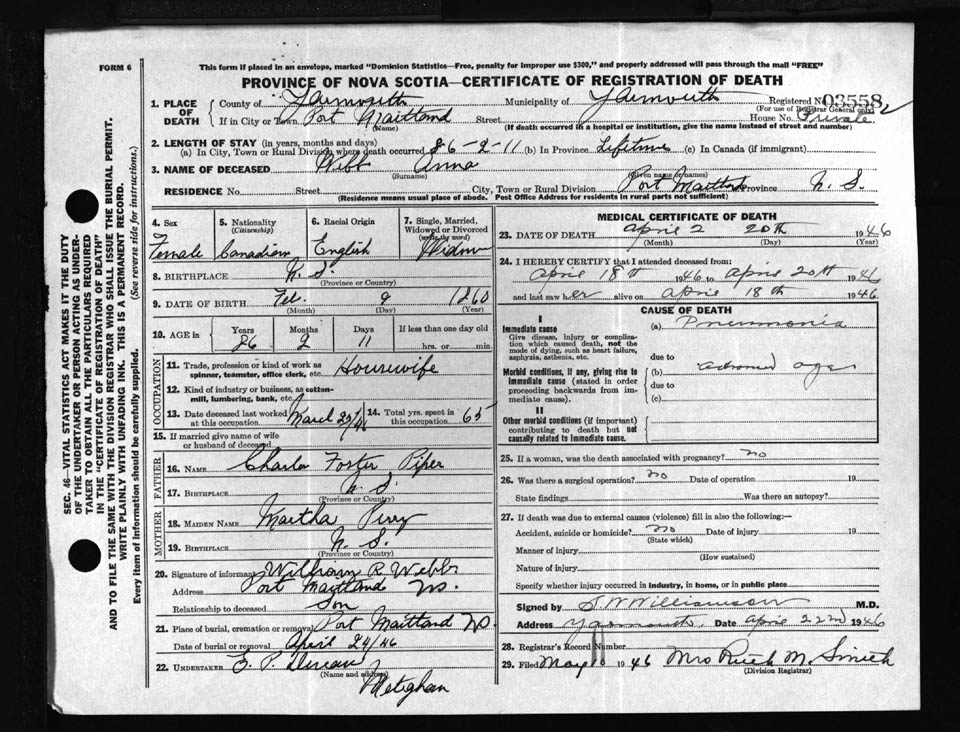 FORM 6
This form if placed in an envelope, marked "Dominion Statistics—Free, penalty for improper use $300," and properly addressed will pass through the mail "FREE"
PROVINCE OF NOVA SCOTIA—CERTIFICATE OF REGISTRATION OF DEATH
SEC. 46—VITAL STATISTICS ACT MAKES IT THE DUTY
OF THE UNDERTAKER OR PERSON ACTING AS UNDER-
TAKER TO OBTAIN ALL THE PARTICULARS REQUIRED
IN THE "CERTIFICATE OF REGISTRATION OF DEATH"
AND TO FILE THE SAME WITH THE DIVISION REGISTRAR WHO SHALL ISSUE THE BURIAL PERMIT.
WRITE PLAINLY WITH UNFADING INK. THIS IS A PERMANENT RECORD.
Every item of Information should be carefully supplied. (See reverse side for instructions.)
1. PLACE OF DEATH County of Yarmouth Municipality of Yarmouth Registered No. 03558
(For use of Registrar General only)
If in City or Town Port Maitland Street House No. Private
(Name) (If death occurred in a hospital or institution, give the name instead of street and number)
2. LENGTH OF STAY (in years, months and days)
(a) In City, Town or Rural Division where death occurred 86-2-11 (b) In Province Lifetime (c) In Canada (if immigrant)
3. NAME OF DECEASED Webb Anna
(Surname) (Given name or names)
RESIDENCE No. Street City, Town or Rural Division Port Maitland Province N. S.
(Residence means usual place of abode. Post Office Address for residents in rural parts not sufficient)
4. Sex Female
5. Nationality (Citizenship) Canadian
6. Racial Origin English
7. Single, Married, Widowed or Divorced (write the word) Widow
8. BIRTHPLACE N. S.
(Province or Country)
9. DATE OF BIRTH Feb. 9 1860
(Month) (Day) (Year)
10. AGE in Years 86 Months 2 Days 11 If less than one day old
hrs. or min.
OCCUPATION
11. Trade, profession or kind of work as spinner, teamster, office clerk, etc. Housewife
12. Kind of industry or business, as cotton-mill, lumbering, bank, etc.
13. Date deceased last worked at this occupation March 14. Total yrs. spent in this occupation 65
15. If married give name of wife or husband of deceased
FATHER
16. NAME Charles Foster Piper
17. BIRTHPLACE N. S.
(Province or Country)
MOTHER
18. MAIDEN NAME Martha Perry
19. BIRTHPLACE N. S.
(Province or Country)
20. Signature of informant William R Webb
Address Port Maitland NS.
Relationship to deceased Son
21. Place of burial, cremation or removal Port Maitland NS
Date of burial or removal April 24/46
22. UNDERTAKER E. P.
(Name and address)
Meteghan
MEDICAL CERTIFICATE OF DEATH
23. DATE OF DEATH April 2 20th 1946
(Month) (Day) (Year)
24. I HEREBY CERTIFY that I attended deceased from:
April 18th 1946 to April 20th 1946
and last saw her alive on April 18th 1946
CAUSE OF DEATH
I
Immediate cause
Give disease, injury or complication which caused death, not the mode of dying, such as heart failure, asphyxia, asthenia, etc.
(a) Pneumonia
due to
Morbid conditions, if any, giving rise to immediate cause (stated in order proceeding backwards from immediate cause).
(b) advanced age
due to
(c)
II
Other morbid conditions (if important) contributing to death but not causally related to immediate cause.
25. If a woman, was the death associated with pregnancy? no
26. Was there a surgical operation? no Date of operation 19
State findings Was there an autopsy?
27. If death was due to external causes (violence) fill in also the following:—
Accident, suicide or homicide? no Date of injury 19
(State which)
Manner of injury
(How sustained)
Nature of injury
Specify whether injury occurred in industry, in home, or in public place
Signed by S W Williamson M.D.
Address Yarmouth, Date April 22nd 1946
28. Registrar's Record Number
29. Filed May 10 1946 Mrs Ruth M. Smith
(Division Registrar)